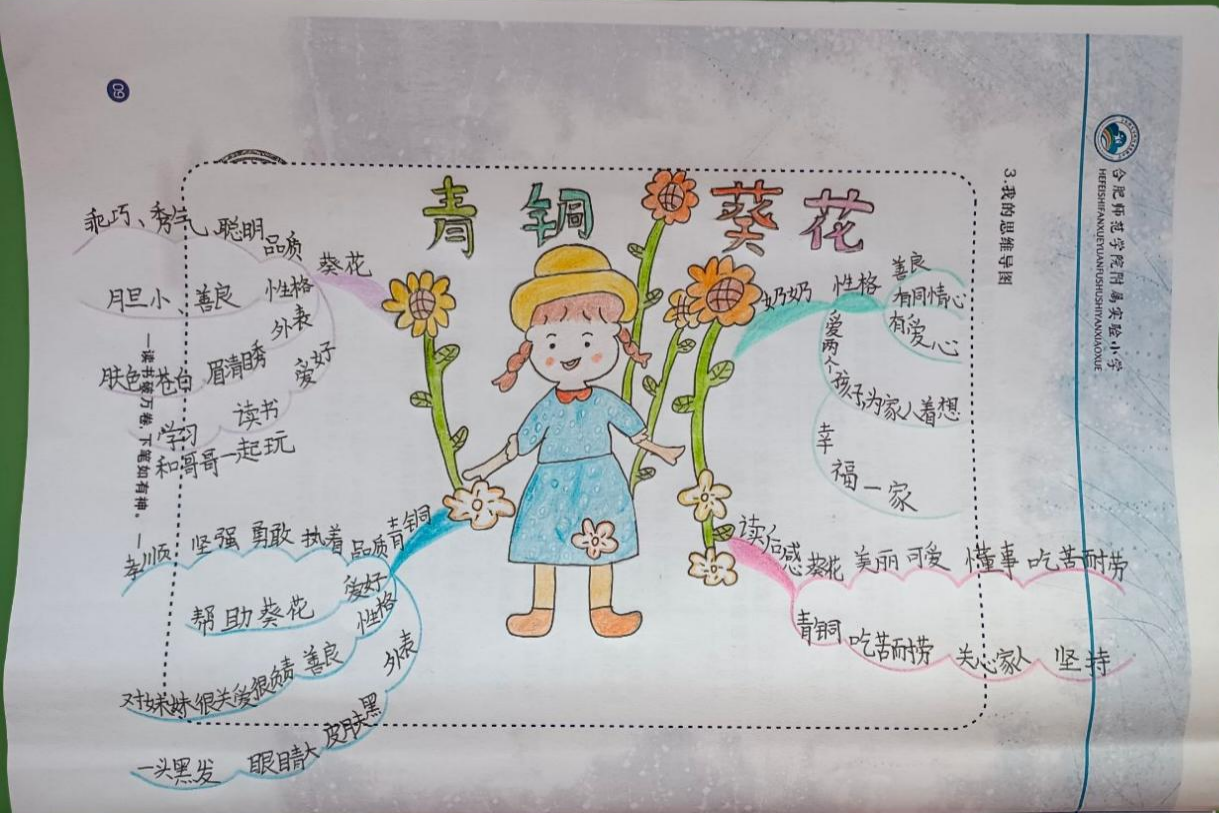 青铜葵花
葵花
品质
乖巧、秀气、聪明
性格
胆小、善良
外表
肤色苍白 眉清目秀
爱好
读书
学习
和哥哥一起玩
青铜
品质
执着 勇敢 坚强 孝顺
爱好
帮助葵花
性格
善良
对妹妹很关爱很负责
外表
皮肤黑
眼睛大
一头黑发
奶奶
性格
善良
有同情心
有爱心
爱两个孩子,为家人着想
幸福一家
读后感
葵花 美丽 可爱 懂事 吃苦耐劳
青铜 吃苦耐劳 关心家人 坚持
3.我的思维导图
合肥师范学院附属实验小学
HEFEISHIFANXUEYUANFUSHUSHIYANXIAOXUE
—读书破万卷,下笔如有神。—